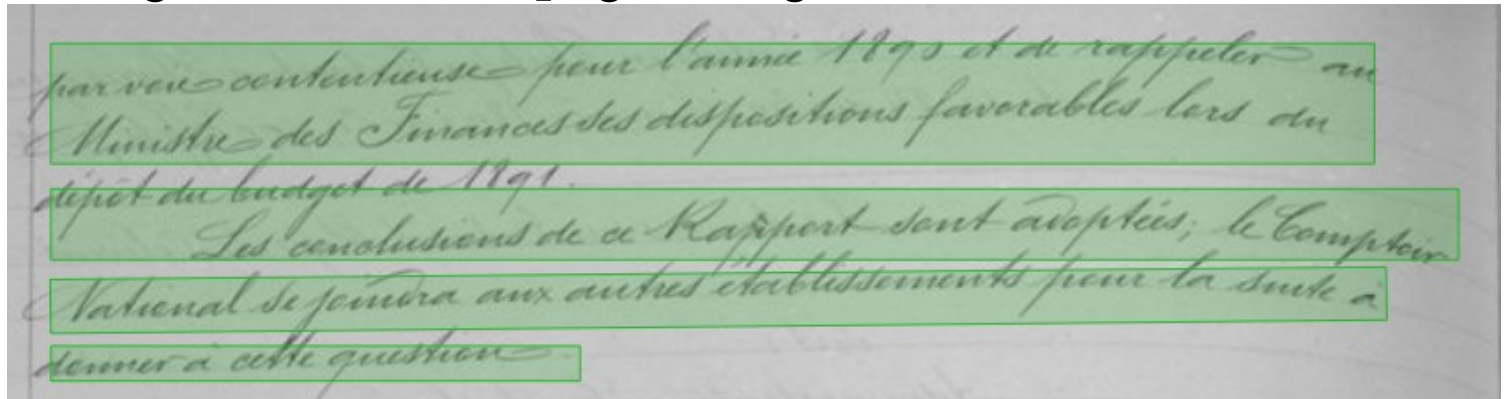 par voie contentieuse pour l'année 1890 et de rappeler au
Ministre des Finances ses dispositions favorables lors du
dépôt du budget de 1891.
Les conclusions de ce Rapport sont adoptées; le Comptoir
National se joindra aux autres établissements pour la suite à
donner à cette question.